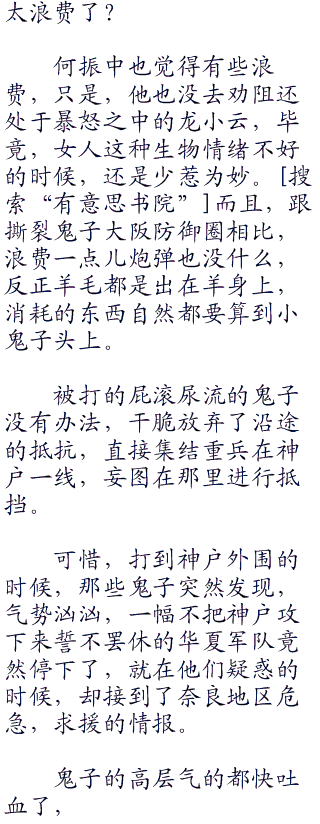 太浪费了？
何振中也觉得有些浪
费，只是，他也没去劝阻还
处于暴怒之中的龙小云，毕
竟，女人这种生物情绪不好
的时候，还是少惹为妙。[搜
索“有意思书院”]而且，跟
撕裂鬼子大阪防御圈相比，
浪费一点儿炮弹也没什么，
反正羊毛都是出在羊身上，
消耗的东西自然都要算到小
鬼子头上。
被打的屁滚尿流的鬼子
没有办法，干脆放弃了沿途
的抵抗，直接集结重兵在神
户一线，妄图在那里进行抵
挡。
可惜，打到神户外围的
时候，那些鬼子突然发现，
气势汹汹，一幅不把神户攻
下来誓不罢休的华夏军队竟
然停下了，就在他们疑惑的
时候，却接到了奈良地区危
急，求援的情报。
鬼子的高层气的都快吐
血了，